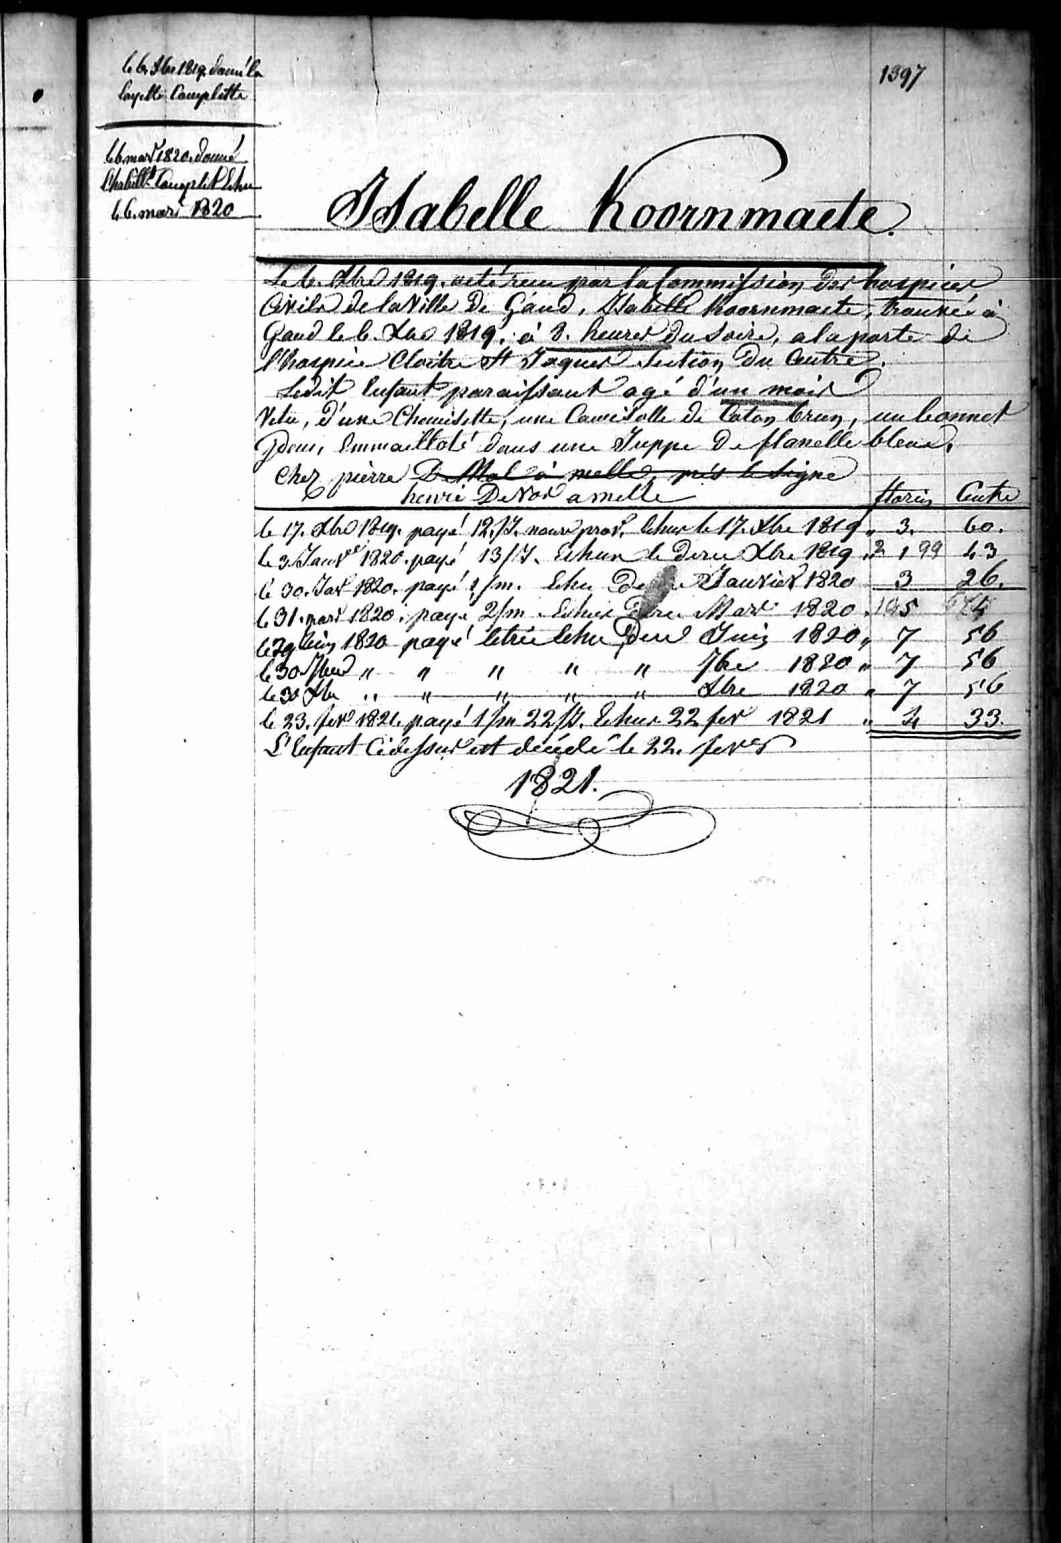 1397
le 6. Xbre 1819. donné la
layette Complette
le 6. mars 1820. donné
l'habillt Complet Echu
le 6. mars 1820
Isabelle Koornmaete.
Le 6. Xbre 1819. a été reçu par la Commission des hospices
Civils de la Ville De Gand, Isabelle Koornmaete, trouvée à
Gand le 6. Xbre 1819. à 8. heures du Soire, a la porte de
l'hospice Cloitre St Jaques Section Du Centre.
Ledit Enfant paraissant agé d'un mois
Vetu, d'une Chemisette, une Camisolle de Caton brun, un bonnet
Idem, Emmailloté dans une Juppe De flanelle bleue,
Chez pierre De Mol à melle, près le Signe
henri De Vos a melle
florins Cents
le 17. Xbre 1819. payé 12./J. nour prov. Echus le 17. Xbre 1819 " 3. 60.
le 3. Janvr 1820. payé 13/J. Echun le Dern Xbre 1819 " 2 1 99 43
le 30. Jar 1820. payé 1/m. Echu Janvier 1820 3 26.
le 31. mars 1820. payé 2/m. Echus Dere Mars 1820 " 5
le 29 Juin 1820 payé letrie Echu Dere Juin 1820 " 7 56
le 30 7bre " " " " " 7bre 1820 " 7 56
le 30 Xbre " " " " " Xbre 1820 " 7 56
le 23. fevr 1821. payé 1/m 22/J. Echus 22 fevr 1821 " 4 33.
L'Enfant Cidessus est décédé le 22. fevrer
1821.